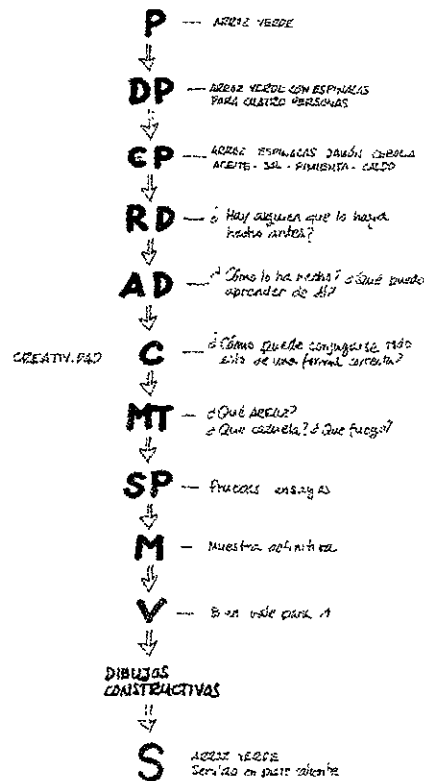 P — ARROZ VERDE
DP — ARROZ VERDE CON ESPINACAS
PARA CUATRO PERSONAS
EP — ARROZ ESPINACAS JAMÓN CEBOLLA
ACEITE - SAL - PIMIENTA - CALDO
RD — ¿Hay alguien que lo haya
hecho antes?
AD — ¿Cómo lo ha hecho? ¿Qué puedo
aprender de él?
CREATIVIDAD C — ¿Cómo puede conjugarse todo
esto de una forma correcta?
MT — ¿Qué ARROZ?
¿Que cazuela? ¿Que fuego?
SP — Pruebas ensayos
M — Muestra definitiva
V — Bien vale para
DIBUJOS
CONSTRUCTIVOS
S ARROZ VERDE
Servido en plato caliente